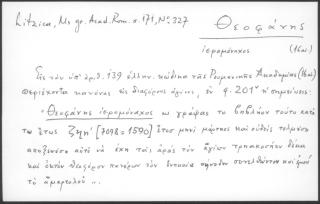 Litzica, Ms gr. Acad. Rom. σ. 171, Nº 327
Θεοφάνης
ἱερομόναχος
(Και)
Εἰς τὸν ὑπ' ἀρ. 139 ἑλλην. κώδικα τῆς Ρουμανικῆς Ἀκαδημίας (Και)
περιέχοντα κανόνας εἰς διαφόρους ἁγίους, ἐν φ. 201ᵛ ἡ σημείωσις:
"Θεοφάνης ἱερομόναχος ὡ γράψας τὸ βηβλήον τοῦτο κατὰ
τω ἔτους ζϟη' [7098 = 1590] ἔτος μηνὶ μάρτιος καὶ οὐδεὶς τολμήσῃ
ἀποξενώσε αὐτὸ νὰ ἔχῃ τὰς ἀρὰς τὸν ἁγίων τριακοσήων δέκα
καὶ ὀκτὼν θεοφόρον πατέρων τὸν ἐν νικαία συνελθόντων καὶ ἐμοῦ
τὸ ἁμαρτολοῦ ...